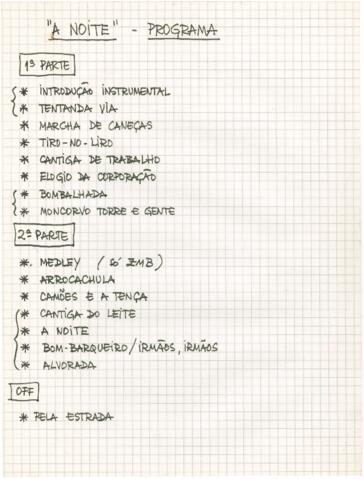 "A NOITE" - PROGRAMA
1ª PARTE
* INTRODUÇÃO INSTRUMENTAL
* TENTANDA VIA
* MARCHA DE CANEÇAS
* TIRO-NO-LIRO
* CANTIGA DE TRABALHO
* ELOGIO DA CORPORAÇÃO
* BOMBALHADA
* MONCORVO TORRE E GENTE
2ª PARTE
*. MEDLEY (SÓ ZMB)
* ARROCACHULA
* CAMÕES E A TENÇA
* CANTIGA DO LEITE
* A NOITE
* BOM-BARQUEIRO/IRMÃOS, IRMÃOS
* ALVORADA
OFF
* PELA ESTRADA